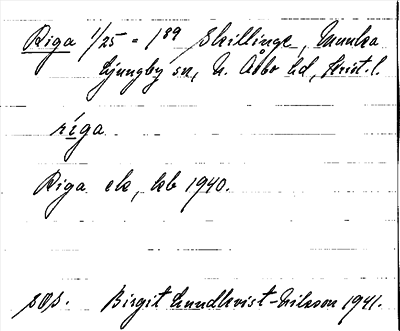 Riga 1/25 = 1⁸⁹ Skillinge, Munka
Ljungby sn, N. Åsbo hd, Krist. l.
riga
Riga ek, kb 1940.
sOs. Birgit Lundkvist-Nilsson 1941.